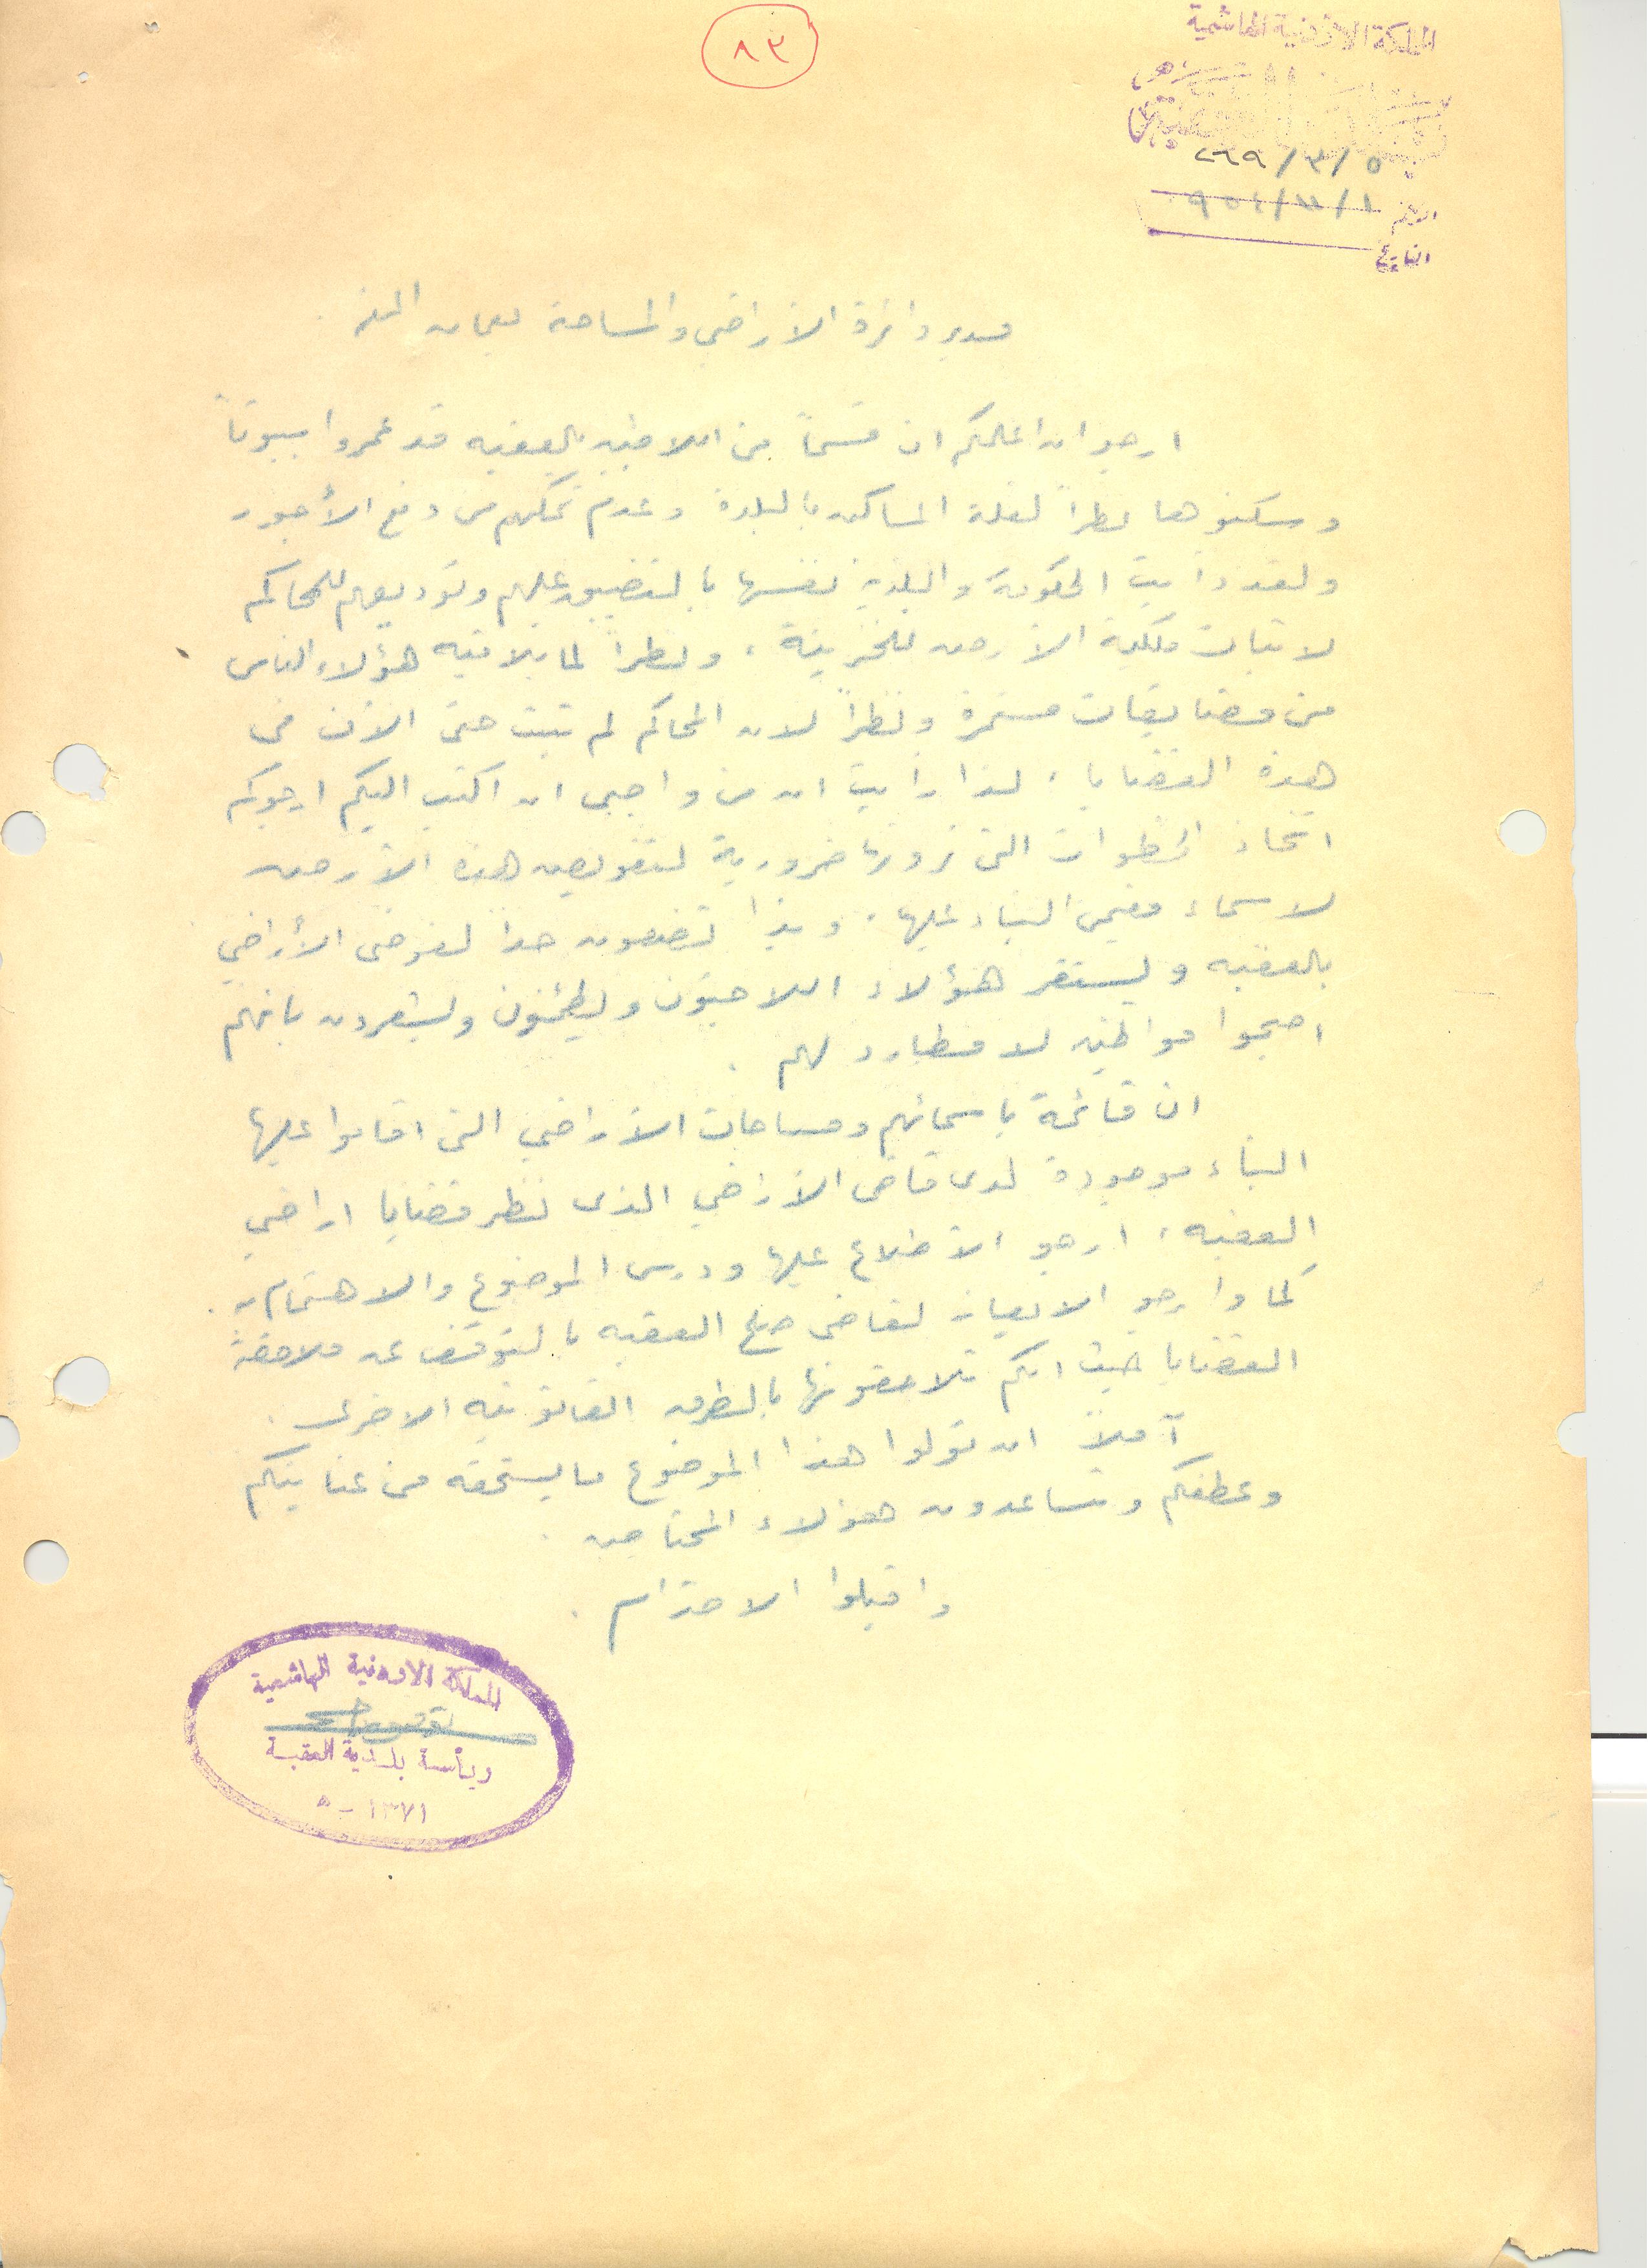 ٨٣
المملكة الاردنية الهاشمية
٥/٣/٢٦٩
الرقم ١/٣/٩٥٤
التاريخ
مدير دائرة الأراضي والمساحة بعمان
ارجو ان اعلمكم ان قسماً من اللاجئين بالعقبه قد عمروا بيوتاً
وسكنوها نظراً لقلة المساكن بالبلدة وعدم تمكنهم من دفع الأجور
ولقد دأبت الحكومة والبلدية نفسها بالتضييق عليهم وتوديعهم للمحاكم
لاثبات ملكية الأرض للخزينة ، ونظراً لما يلاقيه هؤلاء الناس
من مضايقات مستمرة ونظراً لان المحاكم لم تبت حتى الآن في
هذه القضايا ، لذا رأيت ان من واجبي ان اكتب اليكم ارجوكم
اتخاذ الخطوات التي ترونها ضرورية لتفويض هذه الأرض
لاسماء مقيمي البناء عليها ، وبذا تضعون حدا لفوضى الأراضي
بالعقبه وليستقر هؤلاء اللاجئون وليطمئنون وليشعرون بانهم
اصبحوا مواطنين لا مطارد لهم .
ان قائمة باسمائهم ومساحات الأراضي التي اقاموا عليها
البناء موجودة لدى قاضي الأراضي الذي نظر قضايا اراضي
العقبه ، ارجو الأطلاع عليها ودرس الموضوع والاهتمام به .
كما وارجو الايعاز لقاضي صلح العقبه بالتوقف عن ملاحقة
القضايا حيث انكم تلاحقونها بالطرق القانونيه الاخرى .
آملاً ان تولوا هذا الموضوع ما يستحقه من عنايتكم
وعطفكم وتساعدون هؤلاء المحتاجين .
واقبلوا الاحترام .
المملكة الاردنية الهاشمية
رئاسة بلدية العقبة
١٣٧١ - ه